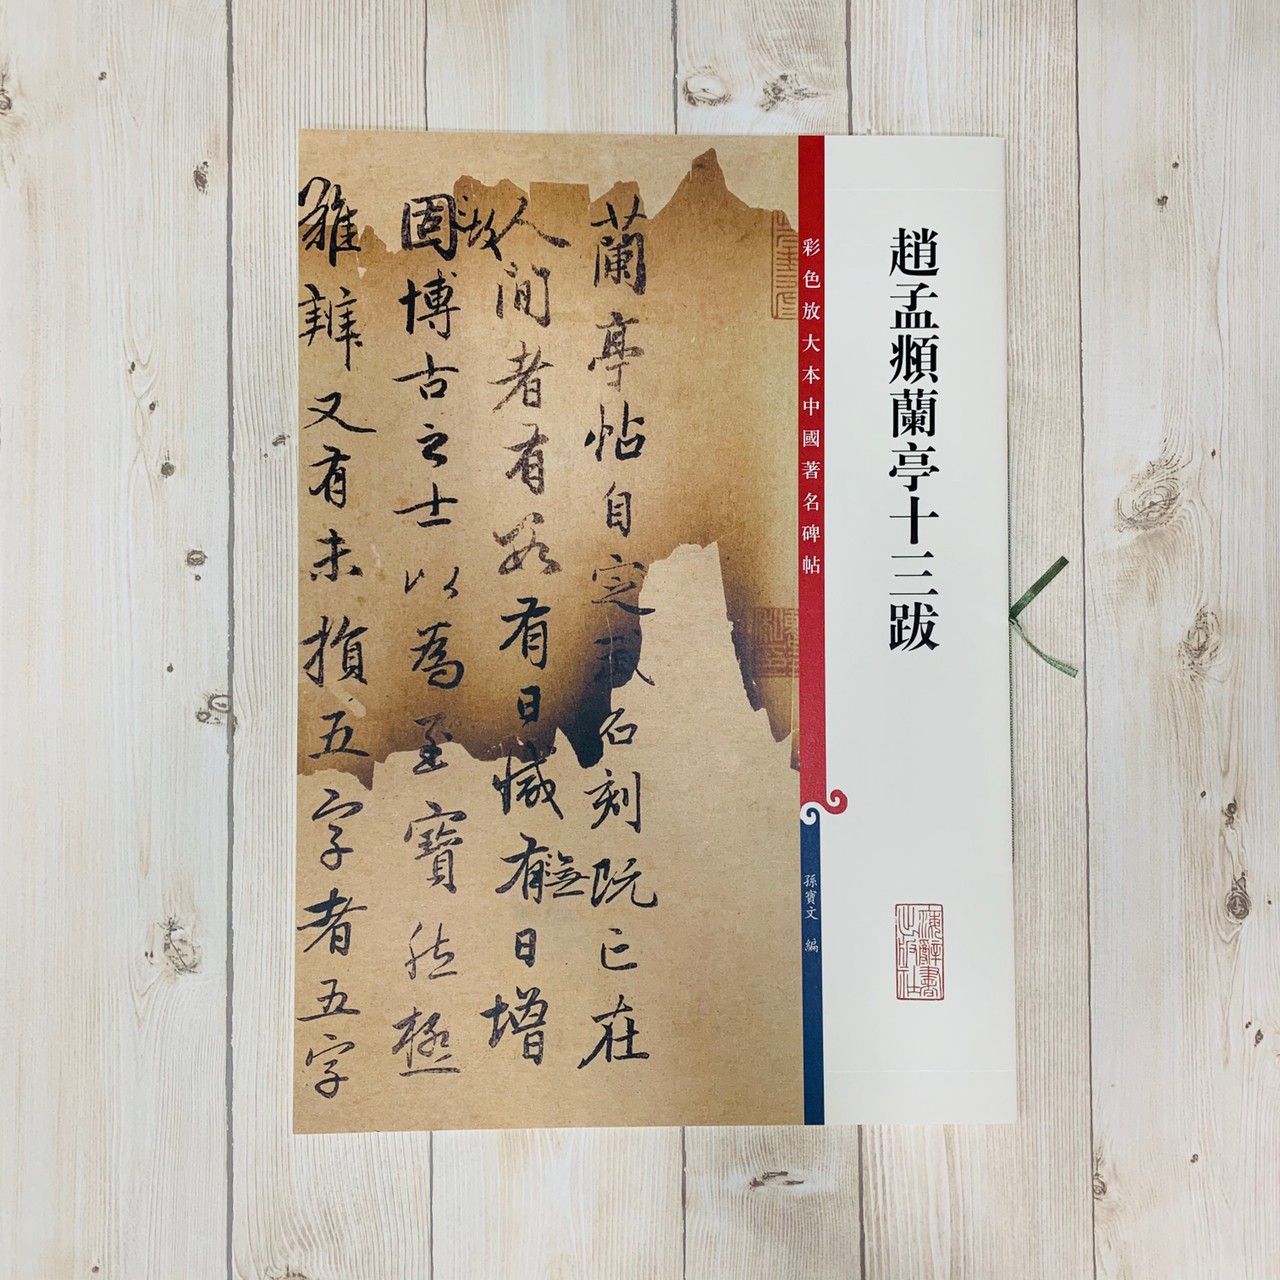 趙孟頫蘭亭十三跋
海辭書出版社
彩色放大本中國著名碑帖
孫寳文 編
蘭亭帖自定武石刻既亡在
人間者有數有日減無日增
故
固博古之士以為至寶然極
難辨又有未損五字者五字